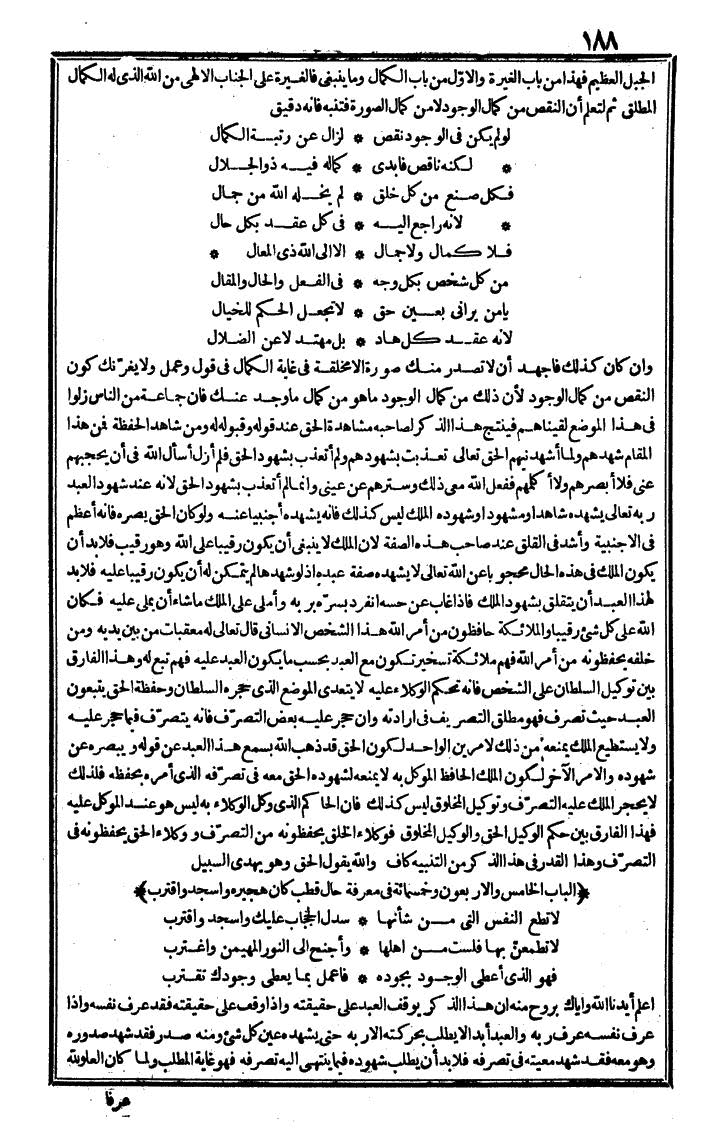 ١٨٨
الجبل العظيم فهذا من باب الغيرة والاول من باب الكمال وما ينبغى فالغيرة على الجناب الالهى من الله الذى له الكمال
المطلق ثم لتعلم أن النقص من كمال الوجود لا من كمال الصورة فتنبه فانه دقيق
لو لم يكن فى الوجود نقص * لزال عن رتبة الكمال
* لكنه ناقص فابدى * كماله فيه ذو الجلال
فكل صنع من كل خلق * لم يخله الله من جمال
* لانه راجع اليه * فى كل عقد بكل حال
فلا كمال ولا جمال * الا الى الله ذى المعال *
من كل شخص بكل وجه * فى الفعل والحال والمقال
يا من يرانى بعين حق * لا تجعل الحكم للخيال
لانه عقد كل هاد * بل مهتد لا عن الضلال
وان كان كذلك فاجهد أن لا تصدر منك صورة الا مخلقة فى غاية الكمال فى قول وعمل ولا يغرنك كون
النقص من كمال الوجود لأن ذلك من كمال الوجود ما هو من كمال ما وجد عنك فان جماعة من الناس زلوا
فى هذا الموضع لقيناهم فينتج هذا الذكر لصاحبه مشاهدة الحق عند قوله وقبوله له ومن شاهد الحفظة فمن هذا
المقام شهدهم ولما أشهدنيهم الحق تعالى تعذبت بشهودهم ولم أتعذب بشهود الحق فلم أزل أسأل الله فى أن يحجبهم
عنى فلا أبصرهم ولا أكلمهم ففعل الله معى ذلك وسترهم عن عينى وانما لم أتعذب بشهود الحق لانه عند شهود العبد
ربه تعالى يشهده شاهدا ومشهودا وشهوده الملك ليس كذلك فانه يشهده أجنبيا عنه ولو كان الحق بصره فانه أعظم
فى الاجنبية وأشد فى القلق عند صاحب هذه الصفة لان الملك لا ينبغى أن يكون رقيبا على الله وهو رقيب فلا بد أن
يكون الملك فى هذه الحال محجوبا عن الله تعالى لا يشهده صفة عبده اذ لو شهدها لم يتمكن له أن يكون رقيبا عليه فلا بد
لهذا العبد أن يتقلق بشهود الملك فاذا غاب عن حسه انفرد بسره بربه وأملى على الملك ما شاء أن يملى عليه فكان
الله على كل شئ رقيبا والملائكة حافظون من أمر الله هذا الشخص الانسانى قال تعالى له معقبات من بين يديه ومن
خلفه يحفظونه من أمر الله فهم ملائكة تسخير تكون مع العبد بحسب ما يكون العبد عليه فهم تبع له وهذا الفارق
بين توكيل السلطان على الشخص فانه تحكم الوكلاء عليه لا يتعدى الموضع الذى حجره السلطان وحفظة الحق يتبعون
العبد حيث تصرف فهو مطلق التصريف فى ارادته وان حجر عليه بعض التصرف فانه يتصرف فيما حجر عليه
ولا يستطيع الملك يمنعه من ذلك لامرين الواحد لكون الحق قد ذهب الله بسمع هذا العبد عن قوله وببصره عن
شهوده والامر الآخر لكون الملك الحافظ الموكل به لا يمنعه لشهوده الحق معه فى تصرفه الذى أمره بحفظه فلذلك
لا يحجر الملك عليه التصرف وتوكيل المخلوق ليس كذلك فان الحاكم الذى وكل الوكلاء به ليس هو عند الموكل عليه
فهذا الفارق بين حكم الوكيل الحق والوكيل المخلوق فوكلاء الخلق يحفظونه من التصرف ووكلاء الحق يحفظونه فى
التصرف وهذا القدر فى هذا الذكر من التنبيه كاف والله يقول الحق وهو يهدى السبيل
﴿الباب الخامس والاربعون وخمسمائة فى معرفة حال قطب كان هجيره واسجد واقترب﴾
لا تطع النفس التى من شأنها * سدل الحجاب عليك واسجد واقترب
لا تطمعن بها فلست من اهلها * وأجنح الى النور المهيمن واغترب
فهو الذى أعطى الوجود بجوده * فاعمل بما يعطى وجودك تقترب
اعلم أيدنا الله واياك بروح منه ان هذا الذكر يوقف العبد على حقيقته واذا وقف على حقيقته فقد عرف نفسه واذا
عرف نفسه عرف ربه والعبد أبدا لا يطلب بحركته الا ربه حتى يشهده عين كل شئ ومنه صدر فقد شهد صدوره
وهو معه فقد شهد معيته فى تصرفه فلا بد أن يطلب شهوده فيما ينتهى اليه تصرفه فهو غاية المطلب ولما كان العلو لله
عرفا